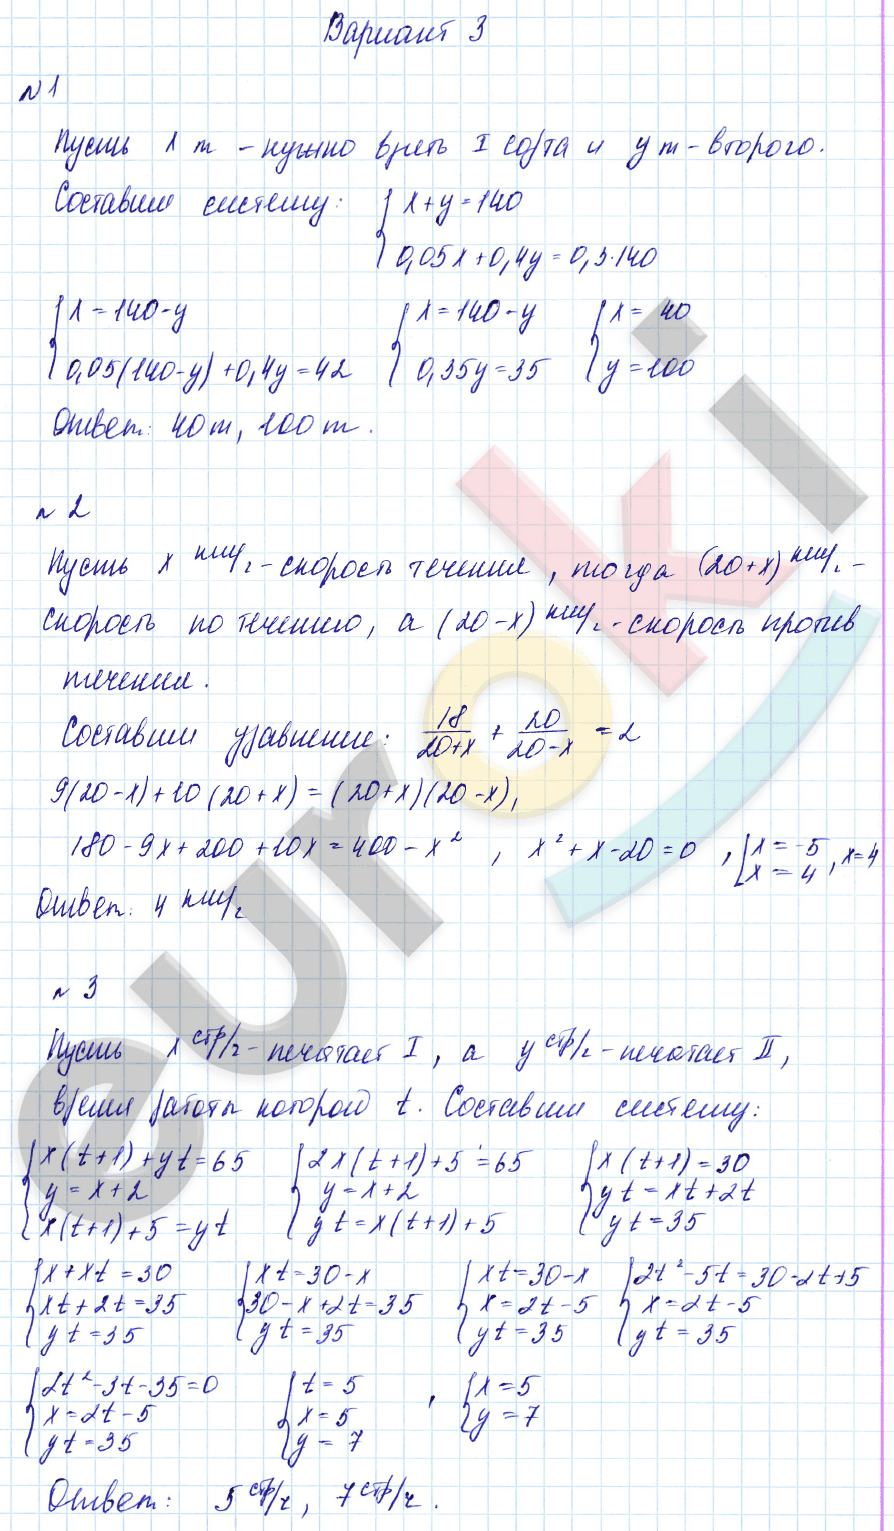 Вариант 3
№ 1
Пусть x т - нужно взять I сорта и y т - второго.
Составим систему: { x + y = 140
0,05x + 0,4y = 0,3·140
{ x = 140 - y { x = 140 - y { x = 40
0,05(140 - y) + 0,4y = 42 0,35y = 35 y = 100
Ответ: 40 т, 100 т.
№ 2
Пусть x км/ч - скорость течения, тогда (20+x) км/ч -
скорость по течению, а (20-x) км/ч - скорость против
течения.
Составим уравнение: 18/(20+x) + 20/(20-x) = 2
9(20-x) + 10(20+x) = (20+x)(20-x),
180 - 9x + 200 + 10x = 400 - x², x² + x - 20 = 0, [ x = -5
x = 4, x = 4
Ответ: 4 км/ч
№ 3
Пусть x стр/ч - печатает I, а y стр/ч - печатает II,
время работы которой t. Составим систему:
{ x(t+1) + yt = 65 { 2x(t+1) + 5 = 65 { x(t+1) = 30
y = x + 2 y = x + 2 yt = xt + 2t
x(t+1) + 5 = yt yt = x(t+1) + 5 yt = 35
{ x + xt = 30 { xt = 30 - x { xt = 30 - x { 2t² - 5t = 30 - 2t + 5
xt + 2t = 35 30 - x + 2t = 35 x = 2t - 5 x = 2t - 5
yt = 35 yt = 35 yt = 35 yt = 35
{ 2t² - 3t - 35 = 0 { t = 5 , { x = 5
x = 2t - 5 x = 5 y = 7
yt = 35 y = 7
Ответ: 5 стр/ч, 7 стр/ч.
euroki